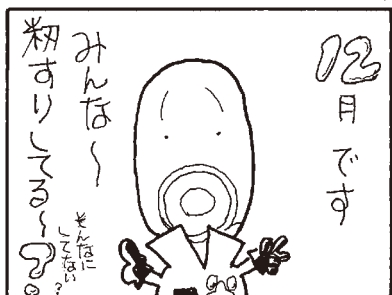 12月です
みんな〜
籾すりしてる〜?
そんなに
してない?